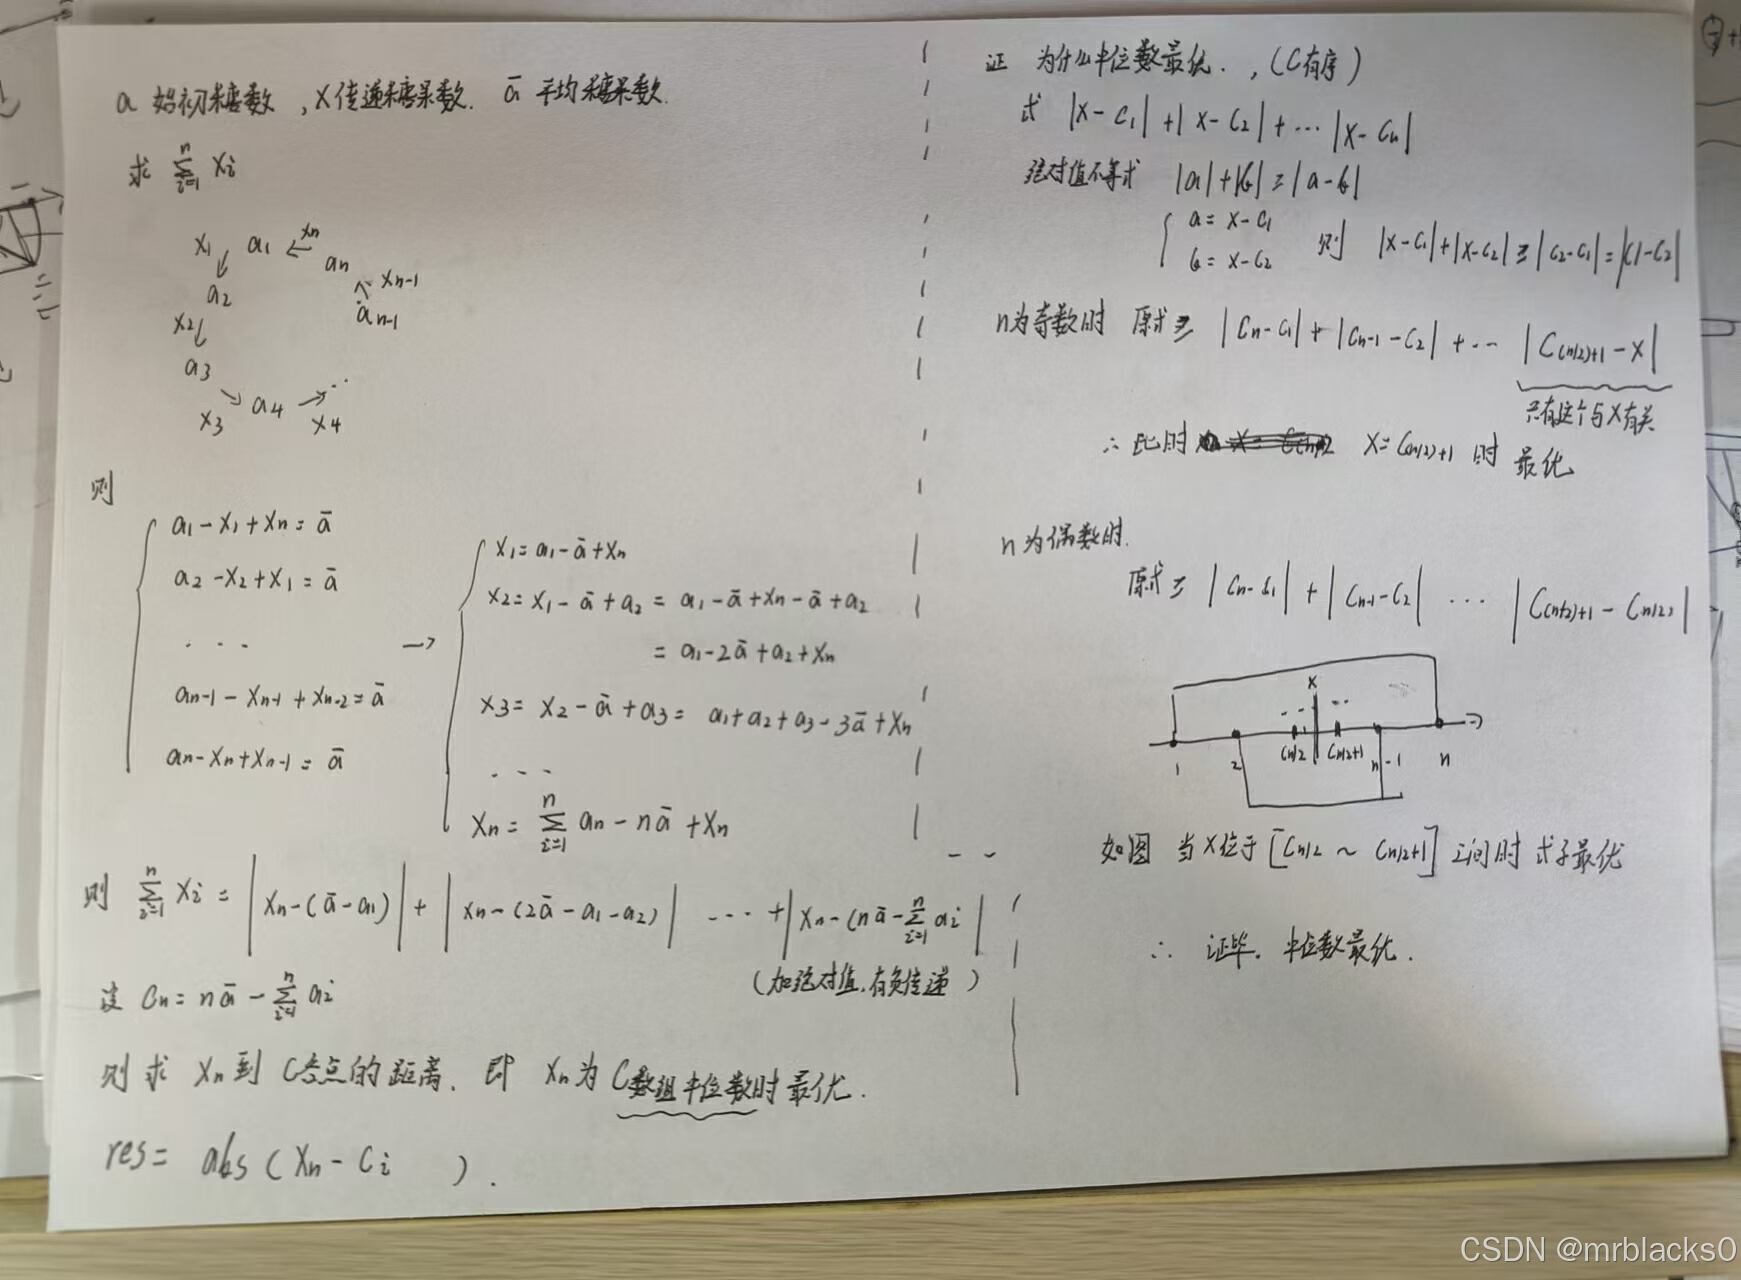 a 始初糖数，X传递糖果数. ā 平均糖果数.
求 Σ_{i=1}^{n} Xi
X1 a1 ← Xn
an
a2 Xn-1
X2 an-1
a3
X3 → a4 → X4 ..
则
a1 - X1 + Xn = ā
a2 - X2 + X1 = ā
. . .
an-1 - Xn-1 + Xn-2 = ā
an - Xn + Xn-1 = ā
→
X1 = a1 - ā + Xn
X2 = X1 - ā + a2 = a1 - ā + Xn - ā + a2
= a1 - 2ā + a2 + Xn
X3 = X2 - ā + a3 = a1 + a2 + a3 - 3ā + Xn
. . .
Xn = Σ_{i=1}^{n} an - nā + Xn
则 Σ_{i=1}^{n} Xi = |Xn - (ā - a1)| + |Xn - (2ā - a1 - a2)| ... + |Xn - (nā - Σ_{i=1}^{n} ai|
(加绝对值，有负传递)
设 Cn = nā - Σ_{i=1}^{n} ai
则求 Xn到 C各点的距离. 即 Xn为 C数组中位数时最优.
res = abs (Xn - Ci ).
证 为什么中位数最优. ，(C有序)
式 |X - C1| + |X - C2| + ... |X - Cn|
绝对值不等式 |a| + |b| ≥ |a - b|
a = X - C1
b = X - C2
则 |X - C1| + |X - C2| ≥ |C2 - C1| = |C1 - C2|
n为奇数时 原式 ≥ |Cn - C1| + |Cn-1 - C2| + ... |C(n/2)+1 - X|
只有这个与X有关
∴ 此时 X = C(n/2)+1 时 最优
n为偶数时.
原式 ≥ |Cn - C1| + |Cn-1 - C2| ... |C(n/2)+1 - C(n/2)|
X
1 2 Cn/2 Cn/2+1 n-1 n
如图 当X位于 [Cn/2 ~ Cn/2+1] 之间时 式子最优
∴ 证毕. 中位数最优.
CSDN @mrblacks0